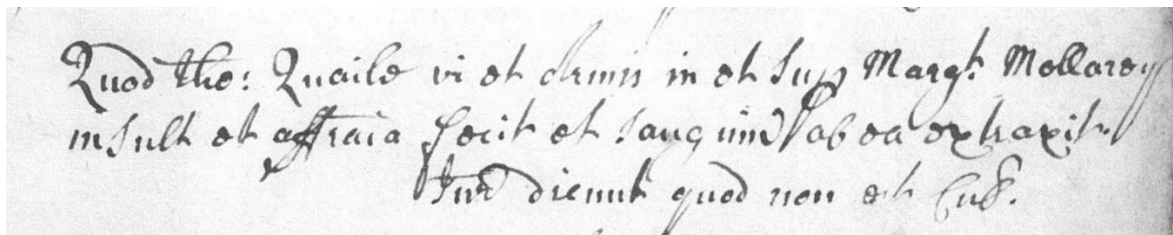 Quod Tho: Quaile vi et Armis in et Sup Margt. Mollarey
insult et affraia fecit et sanguin ab ea extraxit.
Jur dicunt quod non est Cul.